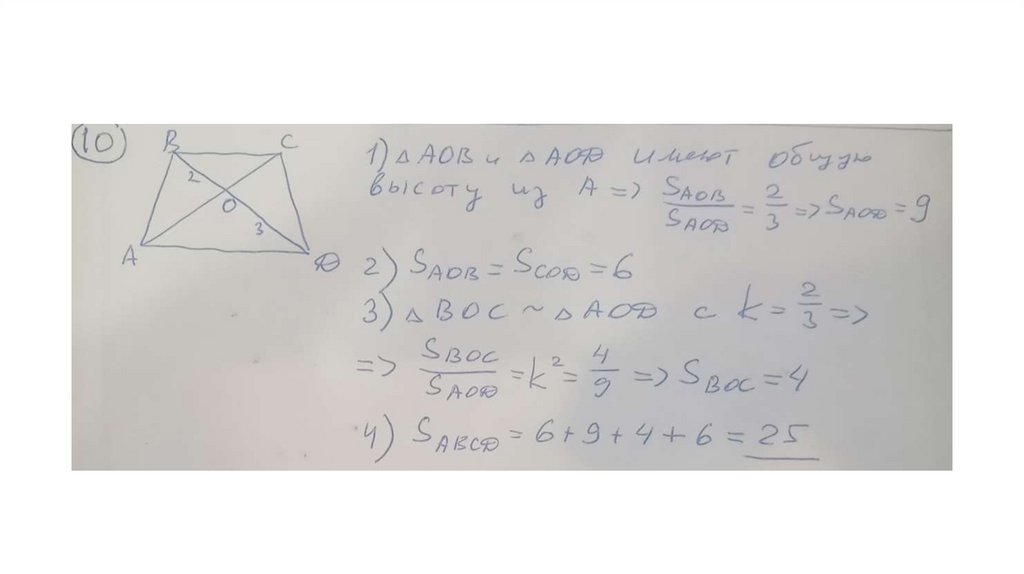 10
B C
2
O
3
A D
1) △AOB и △AOD имеют общую
высоту из A => S_AOB / S_AOD = 2/3 => S_AOD = 9
2) S_AOB = S_COD = 6
3) △BOC ~ △AOD с k = 2/3 =>
=> S_BOC / S_AOD = k² = 4/9 => S_BOC = 4
4) S_ABCD = 6 + 9 + 4 + 6 = 25